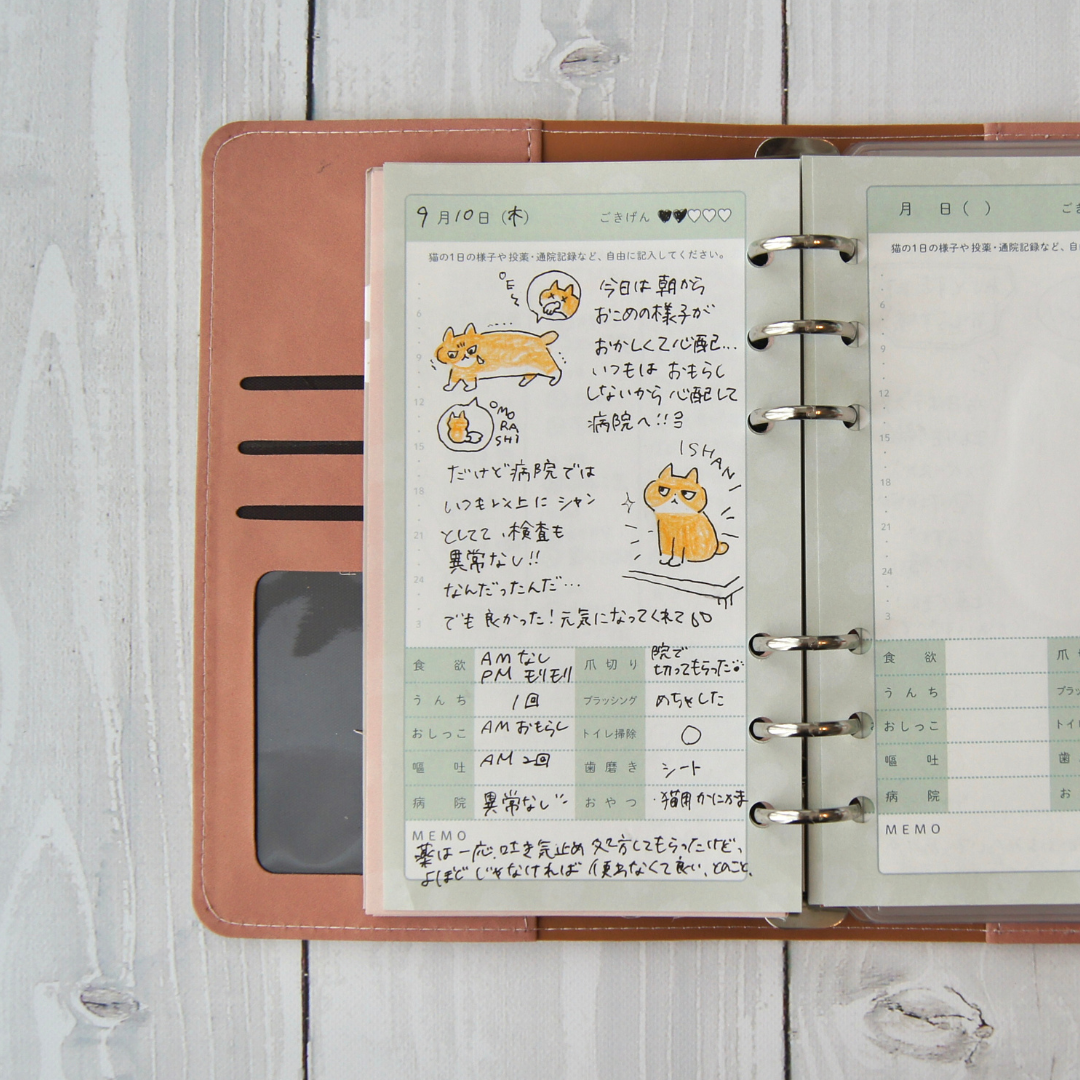 9月10日(木) ごきげん ♥♥♡♡♡
猫の1日の様子や投薬・通院記録など、自由に記入してください。
°E
今日は朝から
おこめの様子が
おかしくて心配…
いつもは おもらし
しないから心配して
病院へ!!
6
9
12
15
18
21
24
3
OMO
RA
SHI
ISHAN
だけど病院では
いつも以上に シャン
としてて、検査も
異常なし!!
なんだったんだ…
でも良かった!元気になってくれて
食欲 AMなし
PM モリモリ
爪切り 院で
切ってもらった
うんち 1回
ブラッシング めちゃした
おしっこ AMおもらし
トイレ掃除 ○
嘔吐 AM 2回
歯磨き シート
病院 異常なし
おやつ ・猫用かにかま
MEMO
薬は一応、吐き気止め処方してもらったけど、
よほどじゃなければ使わなくて良い、とのこと。
月 日( ) ごき
猫の1日の様子や投薬・通院記録など、自
6
9
12
15
18
21
24
3
食欲 爪
うんち ブラッ
おしっこ トイ
嘔吐 歯
病院 お
MEMO